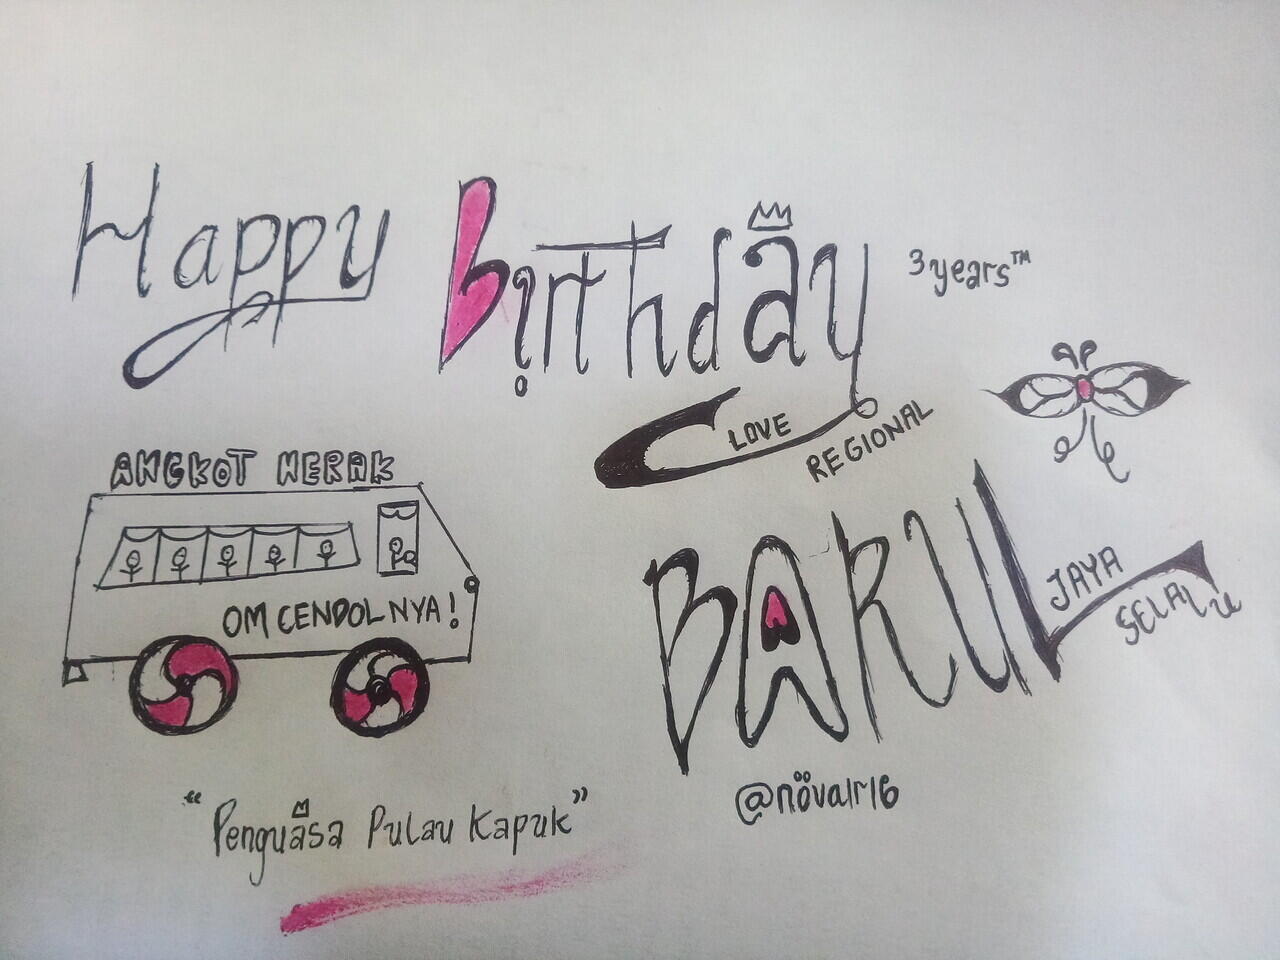 Happy Birthday
3years™
LOVE
REGIONAL
ANGKOT MERAK
OM CENDOL NYA!
BAKUL
JAYA
SELALU
@novalr16
"Penguasa Pulau Kapuk"